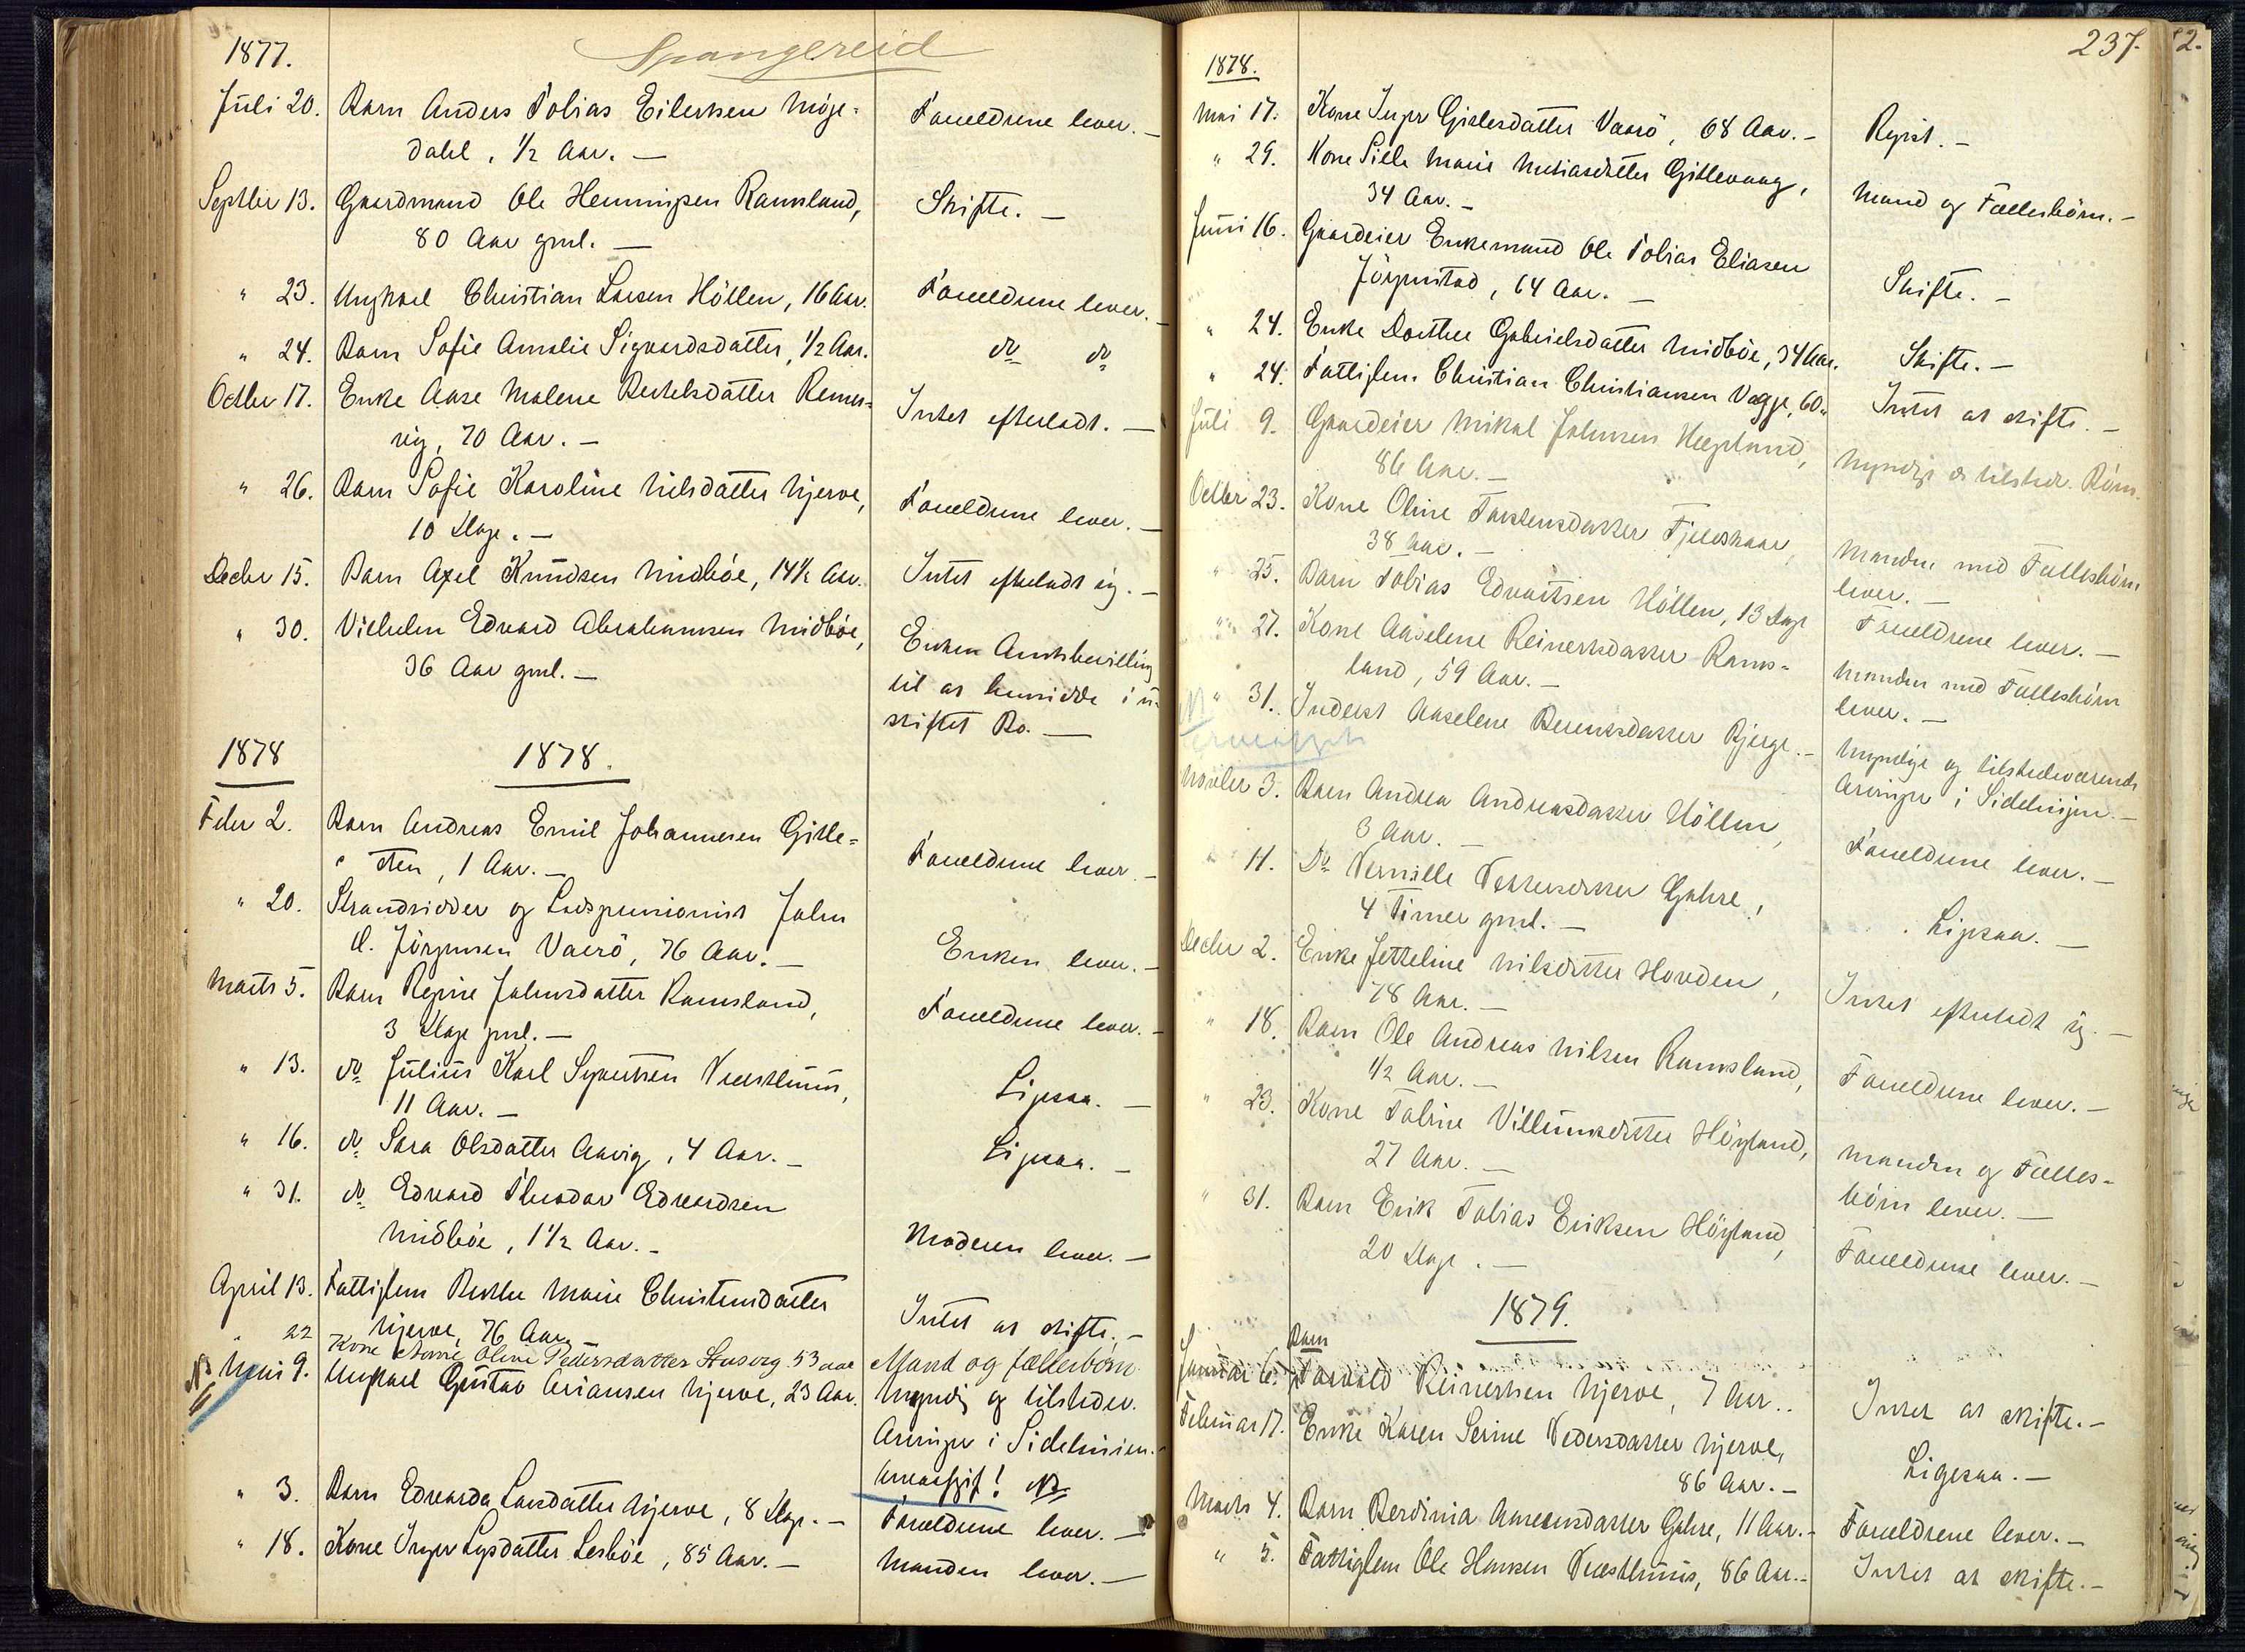 Spangereid
1877.
Juli 20. Barn Anders Tobias Eilertsen Möge- Forældrene lever. —
dahl, 1/2 Aar. —
Septber 13. Gaardmand Ole Henningsen Ramsland, Skifte. —
80 Aar gml. —
" 23. Ungkarl Christian Larsen Höllen, 16 Aar. Forældrene lever. —
" 24. Barn Sofie Amalie Sigvardsdatter, 1/2 Aar. do do
Octber 17. Enke Aase Malene Bertelsdatter Remes- Intet efterladt. —
vig, 70 Aar. —
" 26. Barn Sofie Karoline Nilsdatter Njerve, Forældrene lever. —
10 Dage. —
Decbr 15. Barn Axel Knudsen Midböe, 14 1/2 Aar. Intet efterladt sig. —
" 30. Vilhelm Edvard Abrahamsen Midböe, Enken Amtsbevilling
36 Aar gml. — til at hensidde i u-
skiftet Bo. —
1878 1878.
Febr 2. Barn Andreas Emil Johannesen Gitle-
sten, 1 Aar. — Forældrene lever. —
" 20. Strandsidder og Lodspensionist John
D. Jörgensen Vaerö, 76 Aar. — Enken lever. —
Marts 5. Barn Regine Johnsdatter Ramsland, Forældrene lever. —
3 Dage gml. —
" 13. do Julius Karl Syvertsen Præsthuus, Ligesaa. —
11 Aar. —
" 16. do Sara Olsdatter Aavig, 4 Aar. — Ligesaa. —
" 31. do Edvard Theodor Edvardsen
Midböe, 1 1/2 Aar. — Moderen lever. —
April 13. Fattiglem Berthe Marie Christensdatter
Njerve, 76 Aar. — Intet at skifte. —
" 22 Kone Anne Oline Pedersdatter Stusvig 53 aar Mand og fællesbörn
NB Mai 9. Ungkarl Gustav Ariansen Njerve, 23 Aar. Myndig og tilstedev.
Arvinger i Sidelinien. —
Arveafgift! NB
" 3. Barn Edvarda Larsdatter Njerve, 8 Dage. — Forældrene lever. —
" 18. Kone Inger Lysdatter Lesböe, 85 Aar. — Manden lever. —
237.
1878.
Mai 17. Kone Inger Gislesdatter Vaerö, 68 Aar. — Regist. —
" 29. Kone Sille Marie Mathiasdatter Gitlevaag,
34 Aar. — Mand og Fællesbörn. —
Juni 16. Gaardeier Enkemand Ole Tobias Eliasen
Jörgenstad, 64 Aar. — Skifte. —
" 24. Enke Dorthee Gabrielsdatter Midböe, 34 Aar. Skifte. —
" 24. Fattiglem Christian Christiansen Vagge, 60 " Intet at skifte. —
Juli 9. Gaardeier Mikal Johnsen Hægland,
86 Aar. — Myndige og tilstedev. Börn.
Octbr 23. Kone Oline Torstensdatter Fjeldskaar,
38 Aar. — Manden med Fællesbörn
lever. —
" 25. Barn Tobias Edvartsen Höllen, 13 Dage Forældrene lever. —
" 27. Kone Aaselene Reinertsdatter Rams-
land, 59 Aar. — Manden med Fællesbörn
lever. —
NB " 31. Inderst Aaselene Berentsdatter Bjerge. — Myndige og tilstedeværende
Arveafgift Arvinger i Sidelinjen. —
Novber 3. Barn Andrea Andreasdatter Höllen,
3 Aar. — Forældrene lever. —
" 11. Do Pernille Pettersdatter Gahre,
4 Timer gml. — Ligesaa. —
Decbr 2. Enke Jetteline Nilsdatter Hovden,
78 Aar. — Intet efterladt sig. —
" 18. Barn Ole Andreas Nilsen Ramsland,
1/2 Aar. — Forældrene lever. —
" 23. Kone Taline Villumsdatter Höyland,
27 Aar. — Manden og Fælles-
börn lever. —
" 31. Barn Erik Tobias Eriksen Höyland,
20 Dage. — Forældrene lever. —
1879.
Barn
Januar 6. Torvald Reinertsen Njerve, 7 Aar.. Intet at skifte. —
Februar 17. Enke Karen Serine Pedersdatter Njerve,
86 Aar. — Ligesaa. —
Marts 4. Barn Berdinia Amundsdatter Gahre, 11 Aar. — Forældrene lever. —
" 5. Fattiglem Ole Hansen Præsthuus, 86 Aar. — Intet at skifte. —